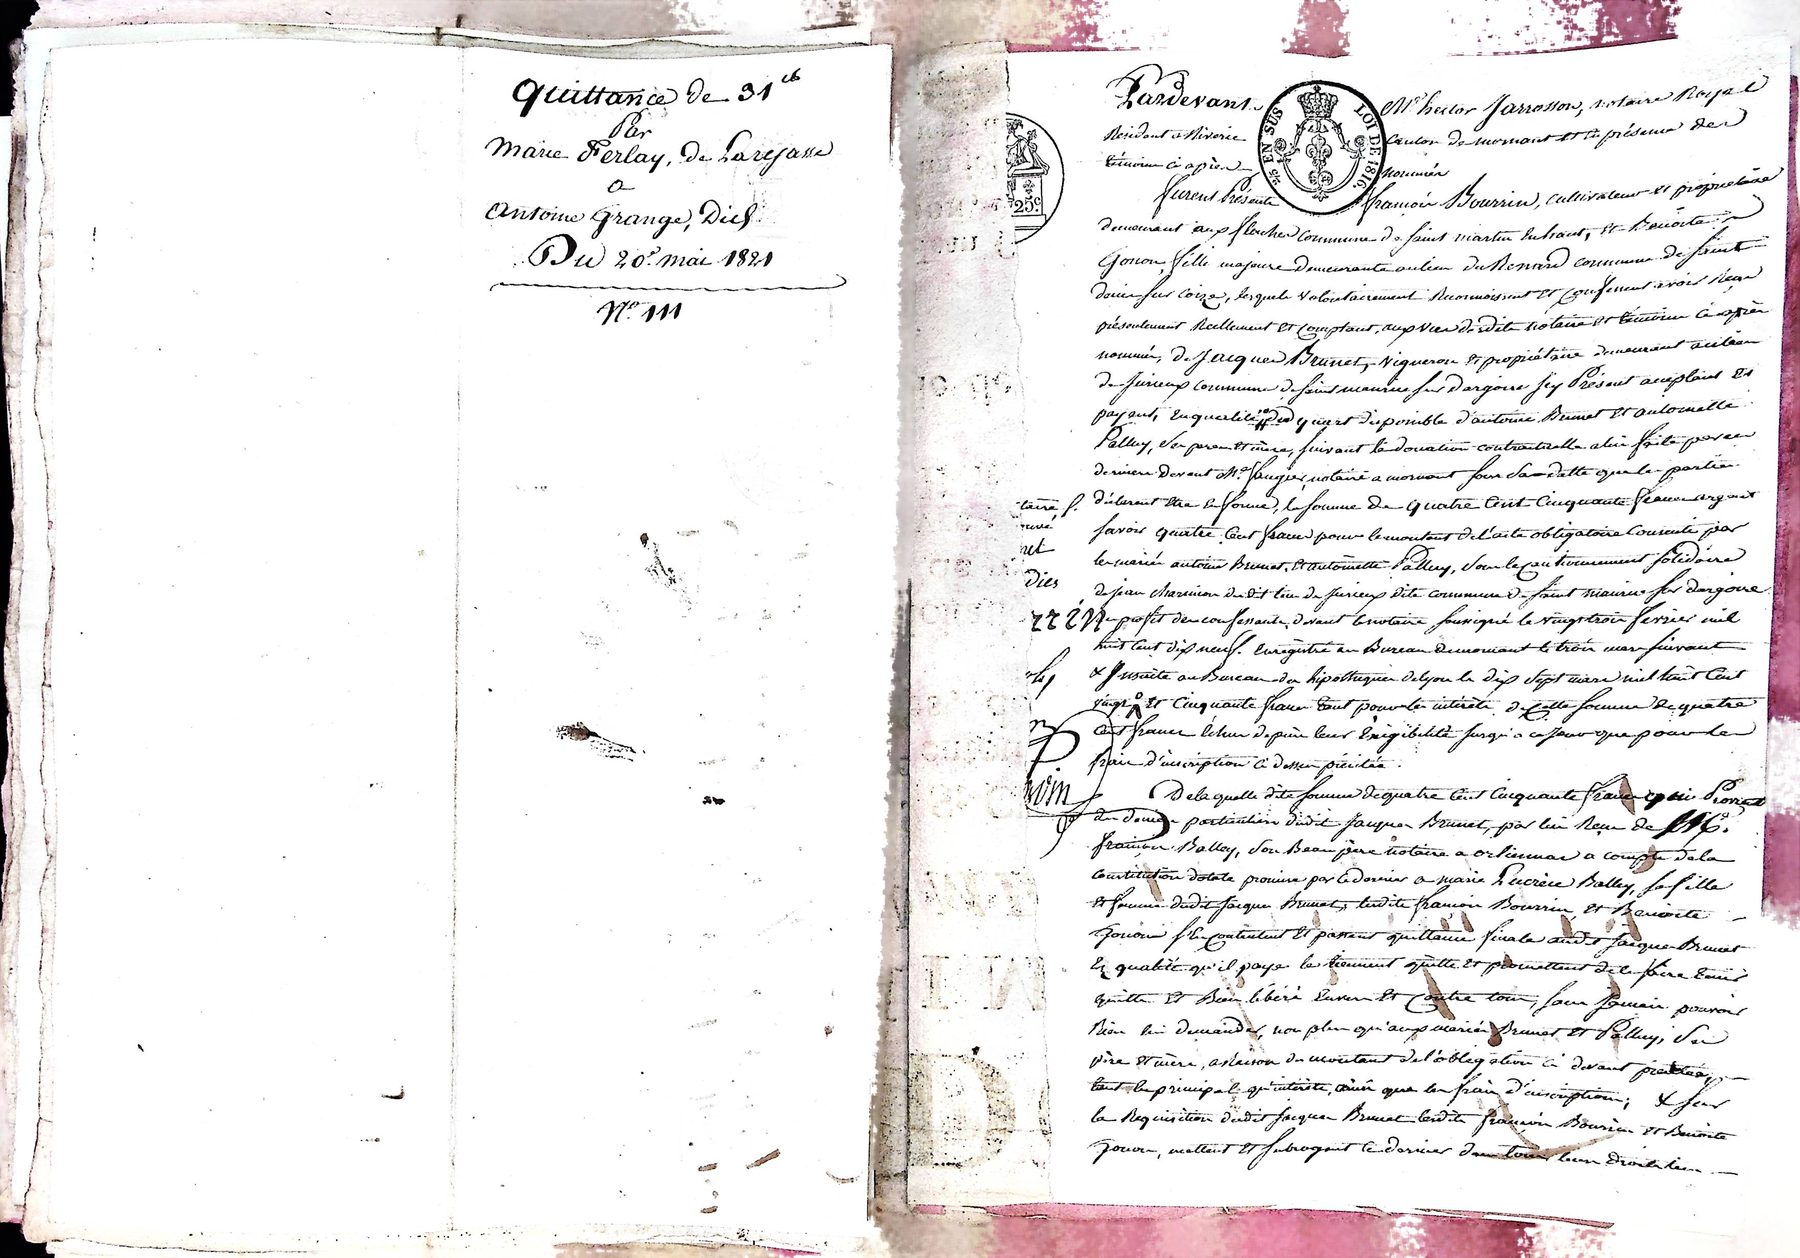 Quittance de 31 ct
Par
Marie Ferlay, de Larejasse
a
Antoine Grange, Dich
Du 20e. mai 1821
No. 111
Pardevant Me. hector Jarrosson, notaire Royal
Résident a Riverie Canton de mornant et en présence des
témoins ci après nommés
furent Présents françois Bourrin, cultivateur et propriétaire
demeurant aux commune de saint martin enhaut, et Benoite
Gonon, fille majeure demeurante au lieu du Renard commune de saint
sur coize, lesquels volontairement Reconnoissent et confessent avoir Reçu
présentement Réellement et comptant, aux vues desdits notaire et témoins ci après
nommés, de Jacques Brunet, vigneron et propriétaire demeurant au lieu
de Jurieux commune de saint maurice sur dargoire icy Présent acceptant et
payant, en qualité de du quart disponible d'antoine Brunet et antoinette
Palluy, ses pere et mere, suivant la donation contractuelle a lui faite par ces
derniers devant Me. notaire a mornant sous sa datte que les parties
déclarent être en forme, la somme de quatre Cent Cinquante francs argent
savoir quatre Cent francs pour le montant de l'acte obligatoire Consenti par
les mariés antoine Brunet, et antoinette Palluy, sous le cautionnement solidaire
de jean dudit lieu de Jurieux dite commune de saint maurice sur dargoire
au profit des confessants, devant le notaire soussigné le vingt trois février mil
huit Cent dix neuf. Enregistré au Bureau de mornant le trois mars suivant
& Inscrite au Bureau des hipothèques de Lyon le dix sept mars mil huit Cent
vingt, et Cinquante francs tant pour les intérêts de cette somme de quatre
Cent francs échus depuis leur Exigibilité jusqu'a ce jour que pour les
frais d'inscription ci dessus précitée.
De la quelle dite somme de quatre Cent Cinquante francs qui Provient
des deniers particuliers dudit Jacques Brunet, par lui Reçu de Me.
françois Balley, son Beau père notaire a orlienas a compte de la
constitution dotale promise par ce dernier a marie Lucrèce Balley, sa fille
et femme dudit Jacques Brunet, lesdits françois Bourrin, et Benoite
Gonon s'en contentent et passent quittance finale audit Jacques Brunet
En qualité qu'il paye le tiennent quitte et promettent de le faire tenir
quitte et Bien libéré envers et contre tous, sans jamais pouvoir
Rien lui demander, non plus qu'aux mariés Brunet et Palluy, ses
père et mère, a raison du montant de l'obligation ci devant précitée,
tant le principal qu'intérêts, ainsi que les frais d'inscription; & sur
la Requisition dudit Jacques Brunet lesdits françois Bourrin et Benoite
Gonon, mettent et subrogent ce dernier dans tous leurs droits
25 EN SUS LOI DE 1816.
25c